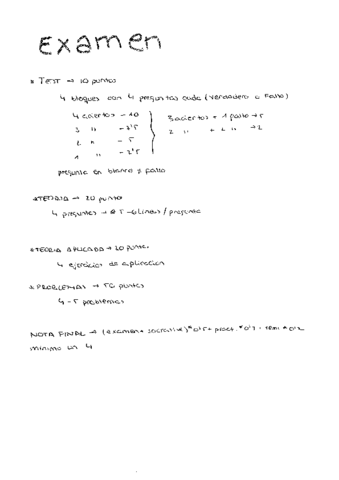 Examen
* TEST → 10 puntos
4 bloques con 4 preguntas cada (verdadero o falso)
4 aciertos - 10
3 " - 7'5
2 " - 5
1 " - 2'5
3 aciertos + 1 fallo → 5
2 " + 2 " → 2
pregunta en blanco ≠ fallo
* TEORIA → 20 punto
4 preguntas → 5 - 6 lineas / pregunta
* TEORIA APLICADA → 20 punto.
4 ejercicios de aplicacion
* PROBLEMAS → 50 puntos
4 - 5 problemas
NOTA FINAL → (examen + socrative) * 0'5 + pract. * 0'3 - semi * 0'2
minimo un 4